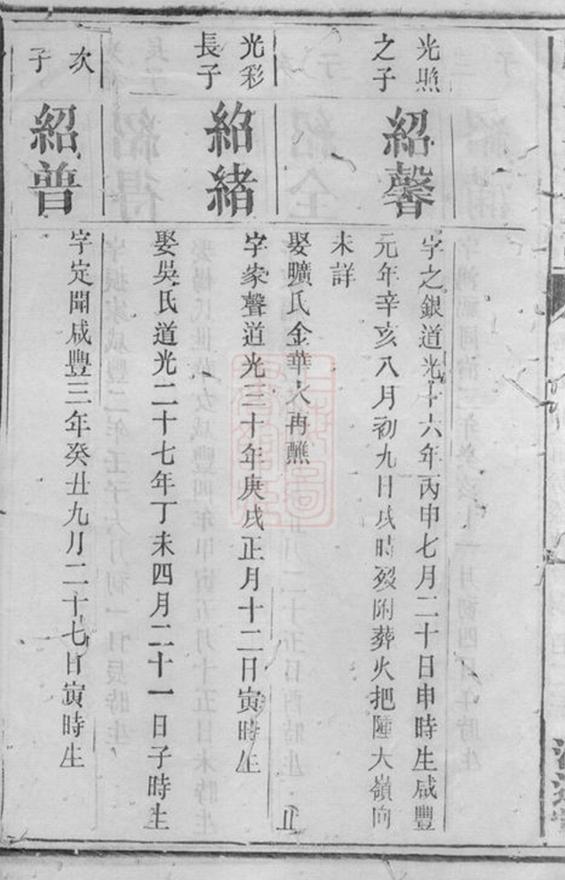 光煦
之子
紹馨
字之銀道光十六年丙申七月二十日申時生咸豐
元年辛亥八月初九日戌時歿附葬火把隴大嶺向
未詳
娶曠氏金華火再醮
光彩
長子
紹緒
字家聲道光三十年庚戌正月十二日寅時生
娶吳氏道光二十七年丁未四月二十一日子時生
次
子
紹普
字定聞咸豐三年癸丑九月二十七日寅時生